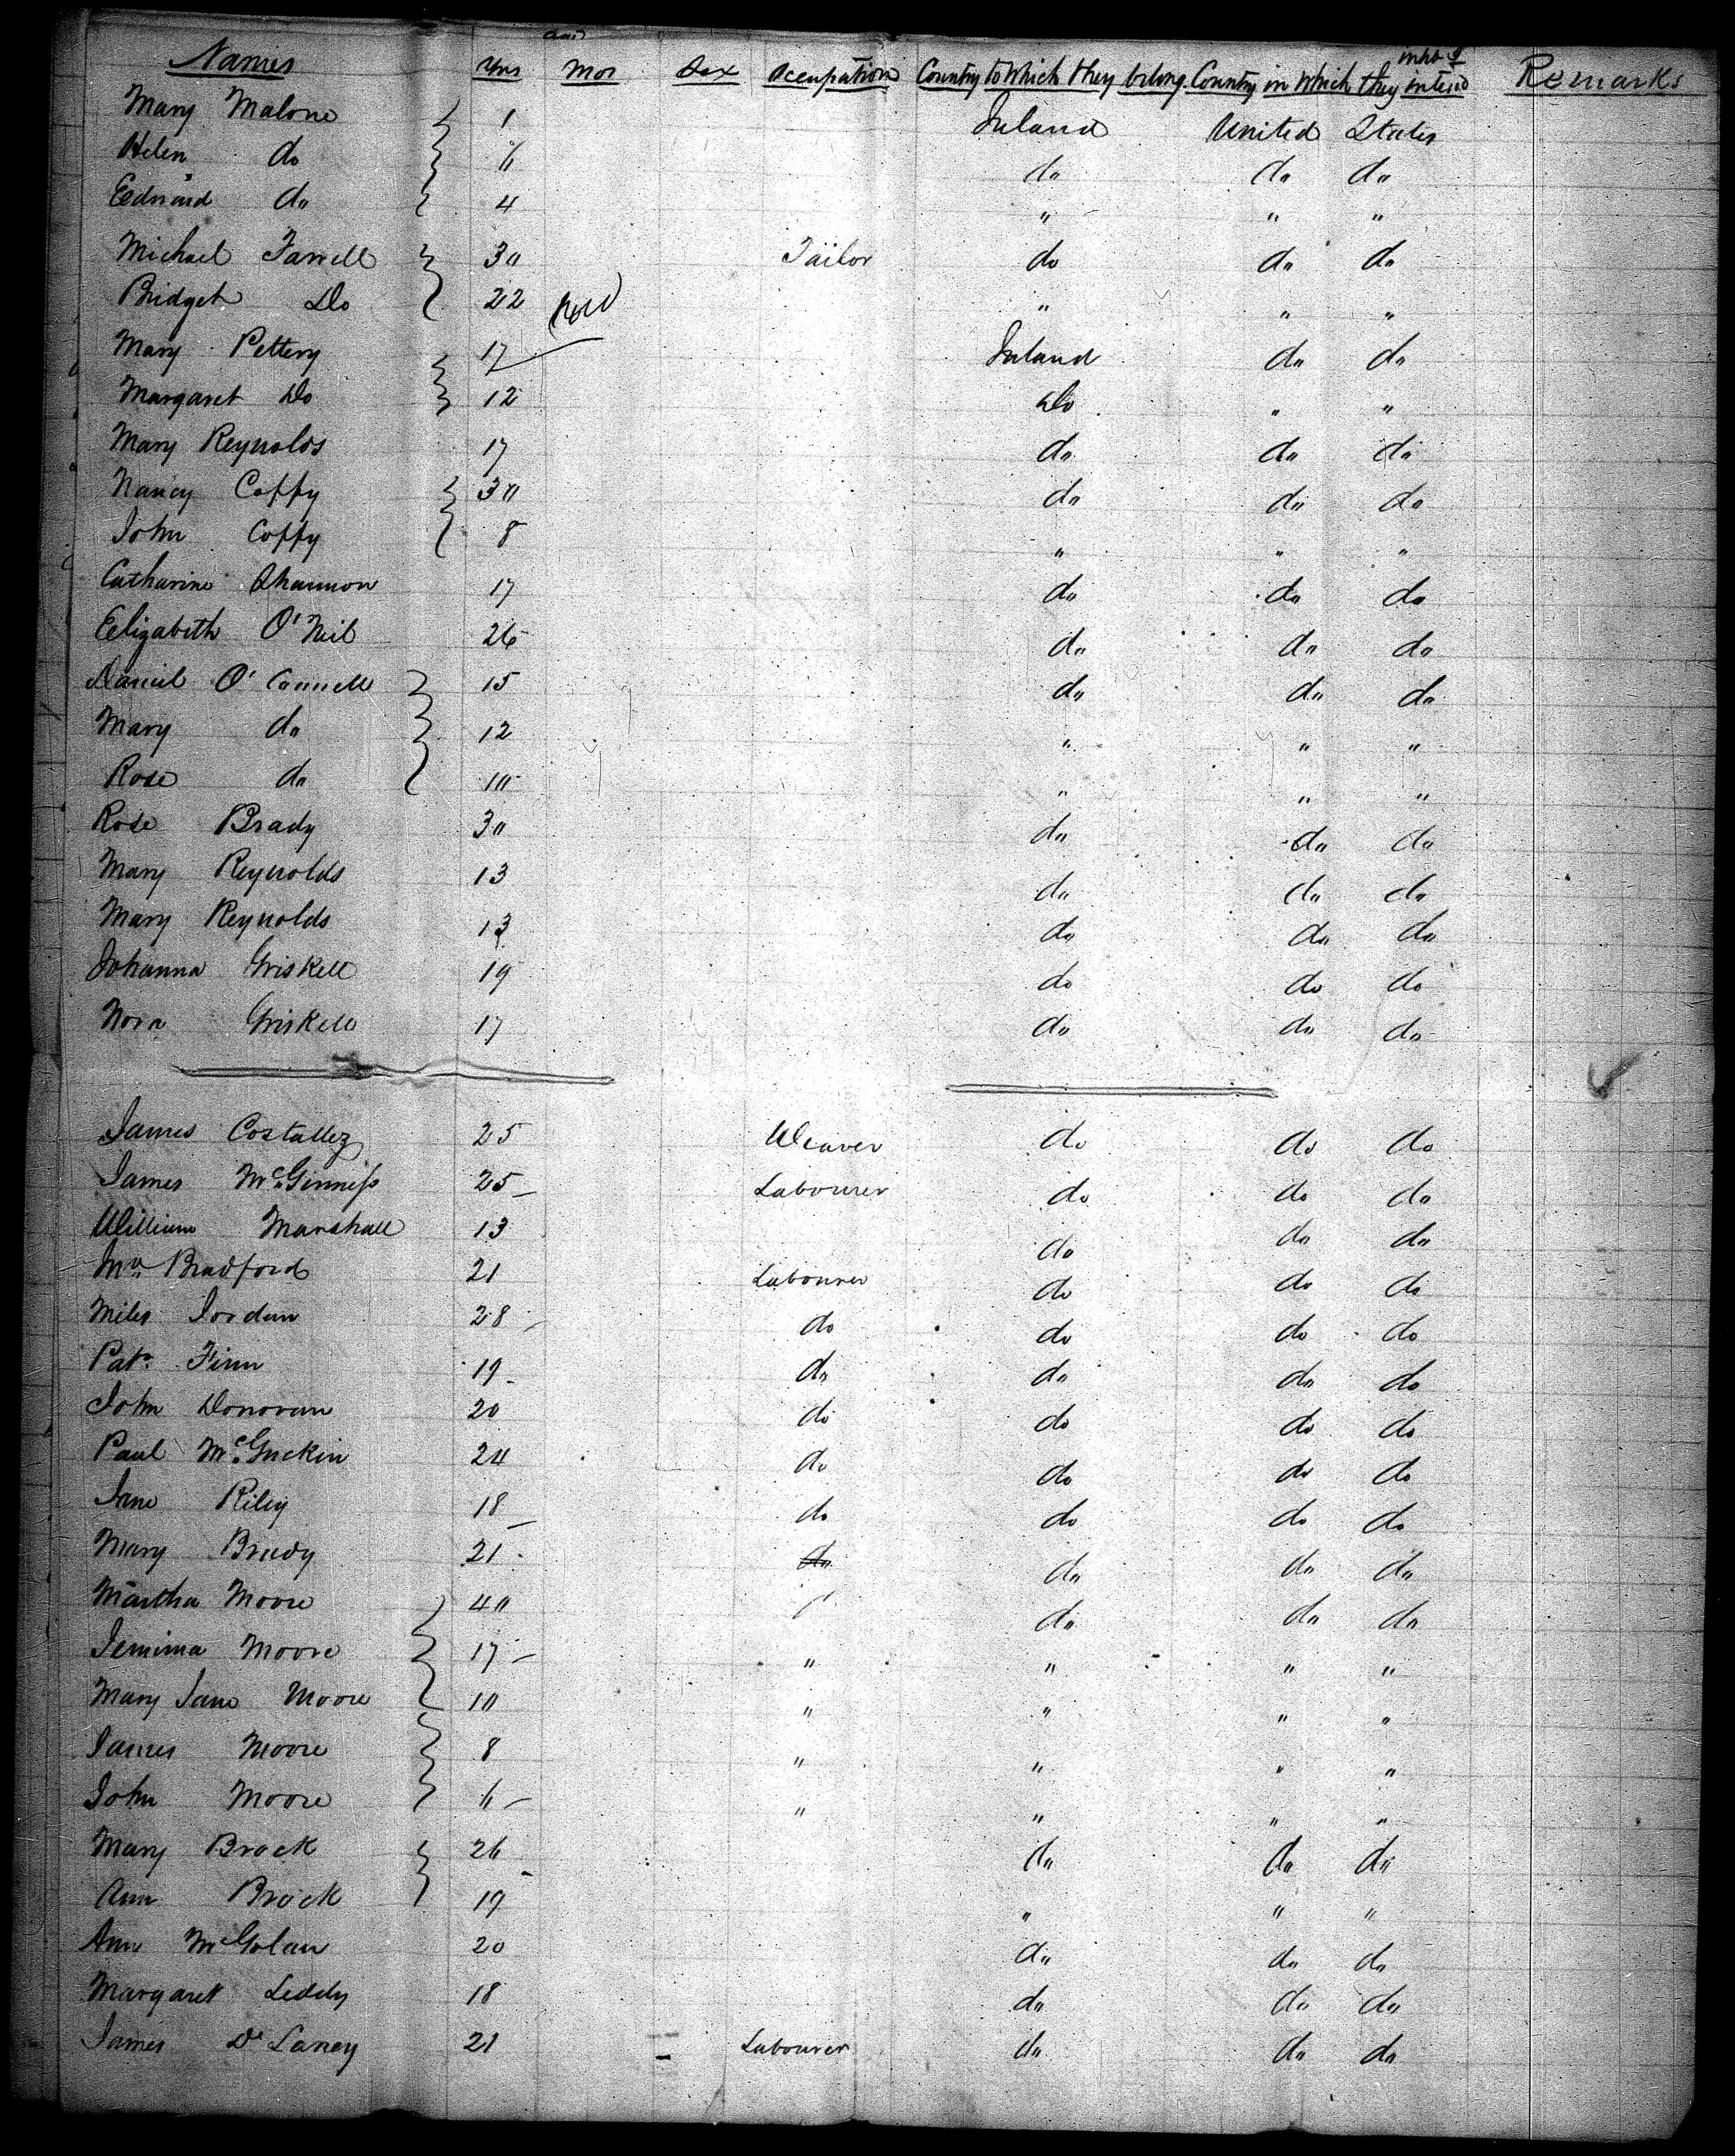 Names Yrs Mos Sex Occupation Country to Which they belong Country in Which they intend inhbt g Remarks
Mary Malone 1 Ireland United States
Helen do 6 do do do
Eedward do 4 " " "
Michael Farrell 30 Tailor do do do
Bridget Do 22 " " "
Mary Pettery 17 Ireland do do
Margaret Do 12 Do " "
Mary Reynolds 17 do do do
Nancy Coffy 30 do do do
John Coffy 8 " " "
Catharine Shannon 17 do do do
Eelizabeth O'Neil 26 do do do
Daniel O'Connell 15 do do do
Mary do 12 " " "
Rose do 10 " " "
Rose Brady 30 do do do
Mary Reynolds 13 do do do
Mary Reynolds 13 do do do
Johanna Griskell 19 do do do
Nora Griskell 17 do do do
James 25 Weaver do do do
James McGinness 25 Labourer do do do
William Marshall 13 do do do
Bradford 21 Labourer do do do
Miles Jordan 28 do do do do
Pat. Finn 19 do do do do
John Donovan 20 do do do do
Paul McGuckin 24 do do do do
Jane Riley 18 do do do do
Mary Brady 21 do do do do
Martha Moore 40 do do do
Jemima Moore 17 " " " "
Mary Jane Moore 10 " " " "
James Moore 8 " " " "
John Moore 6 " " " "
Mary Brock 26 do do do
Ann Brock 19 " " "
Ann McGolan 20 do do do
Margaret Leddy 18 do do do
James De Laney 21 Labourer do do do